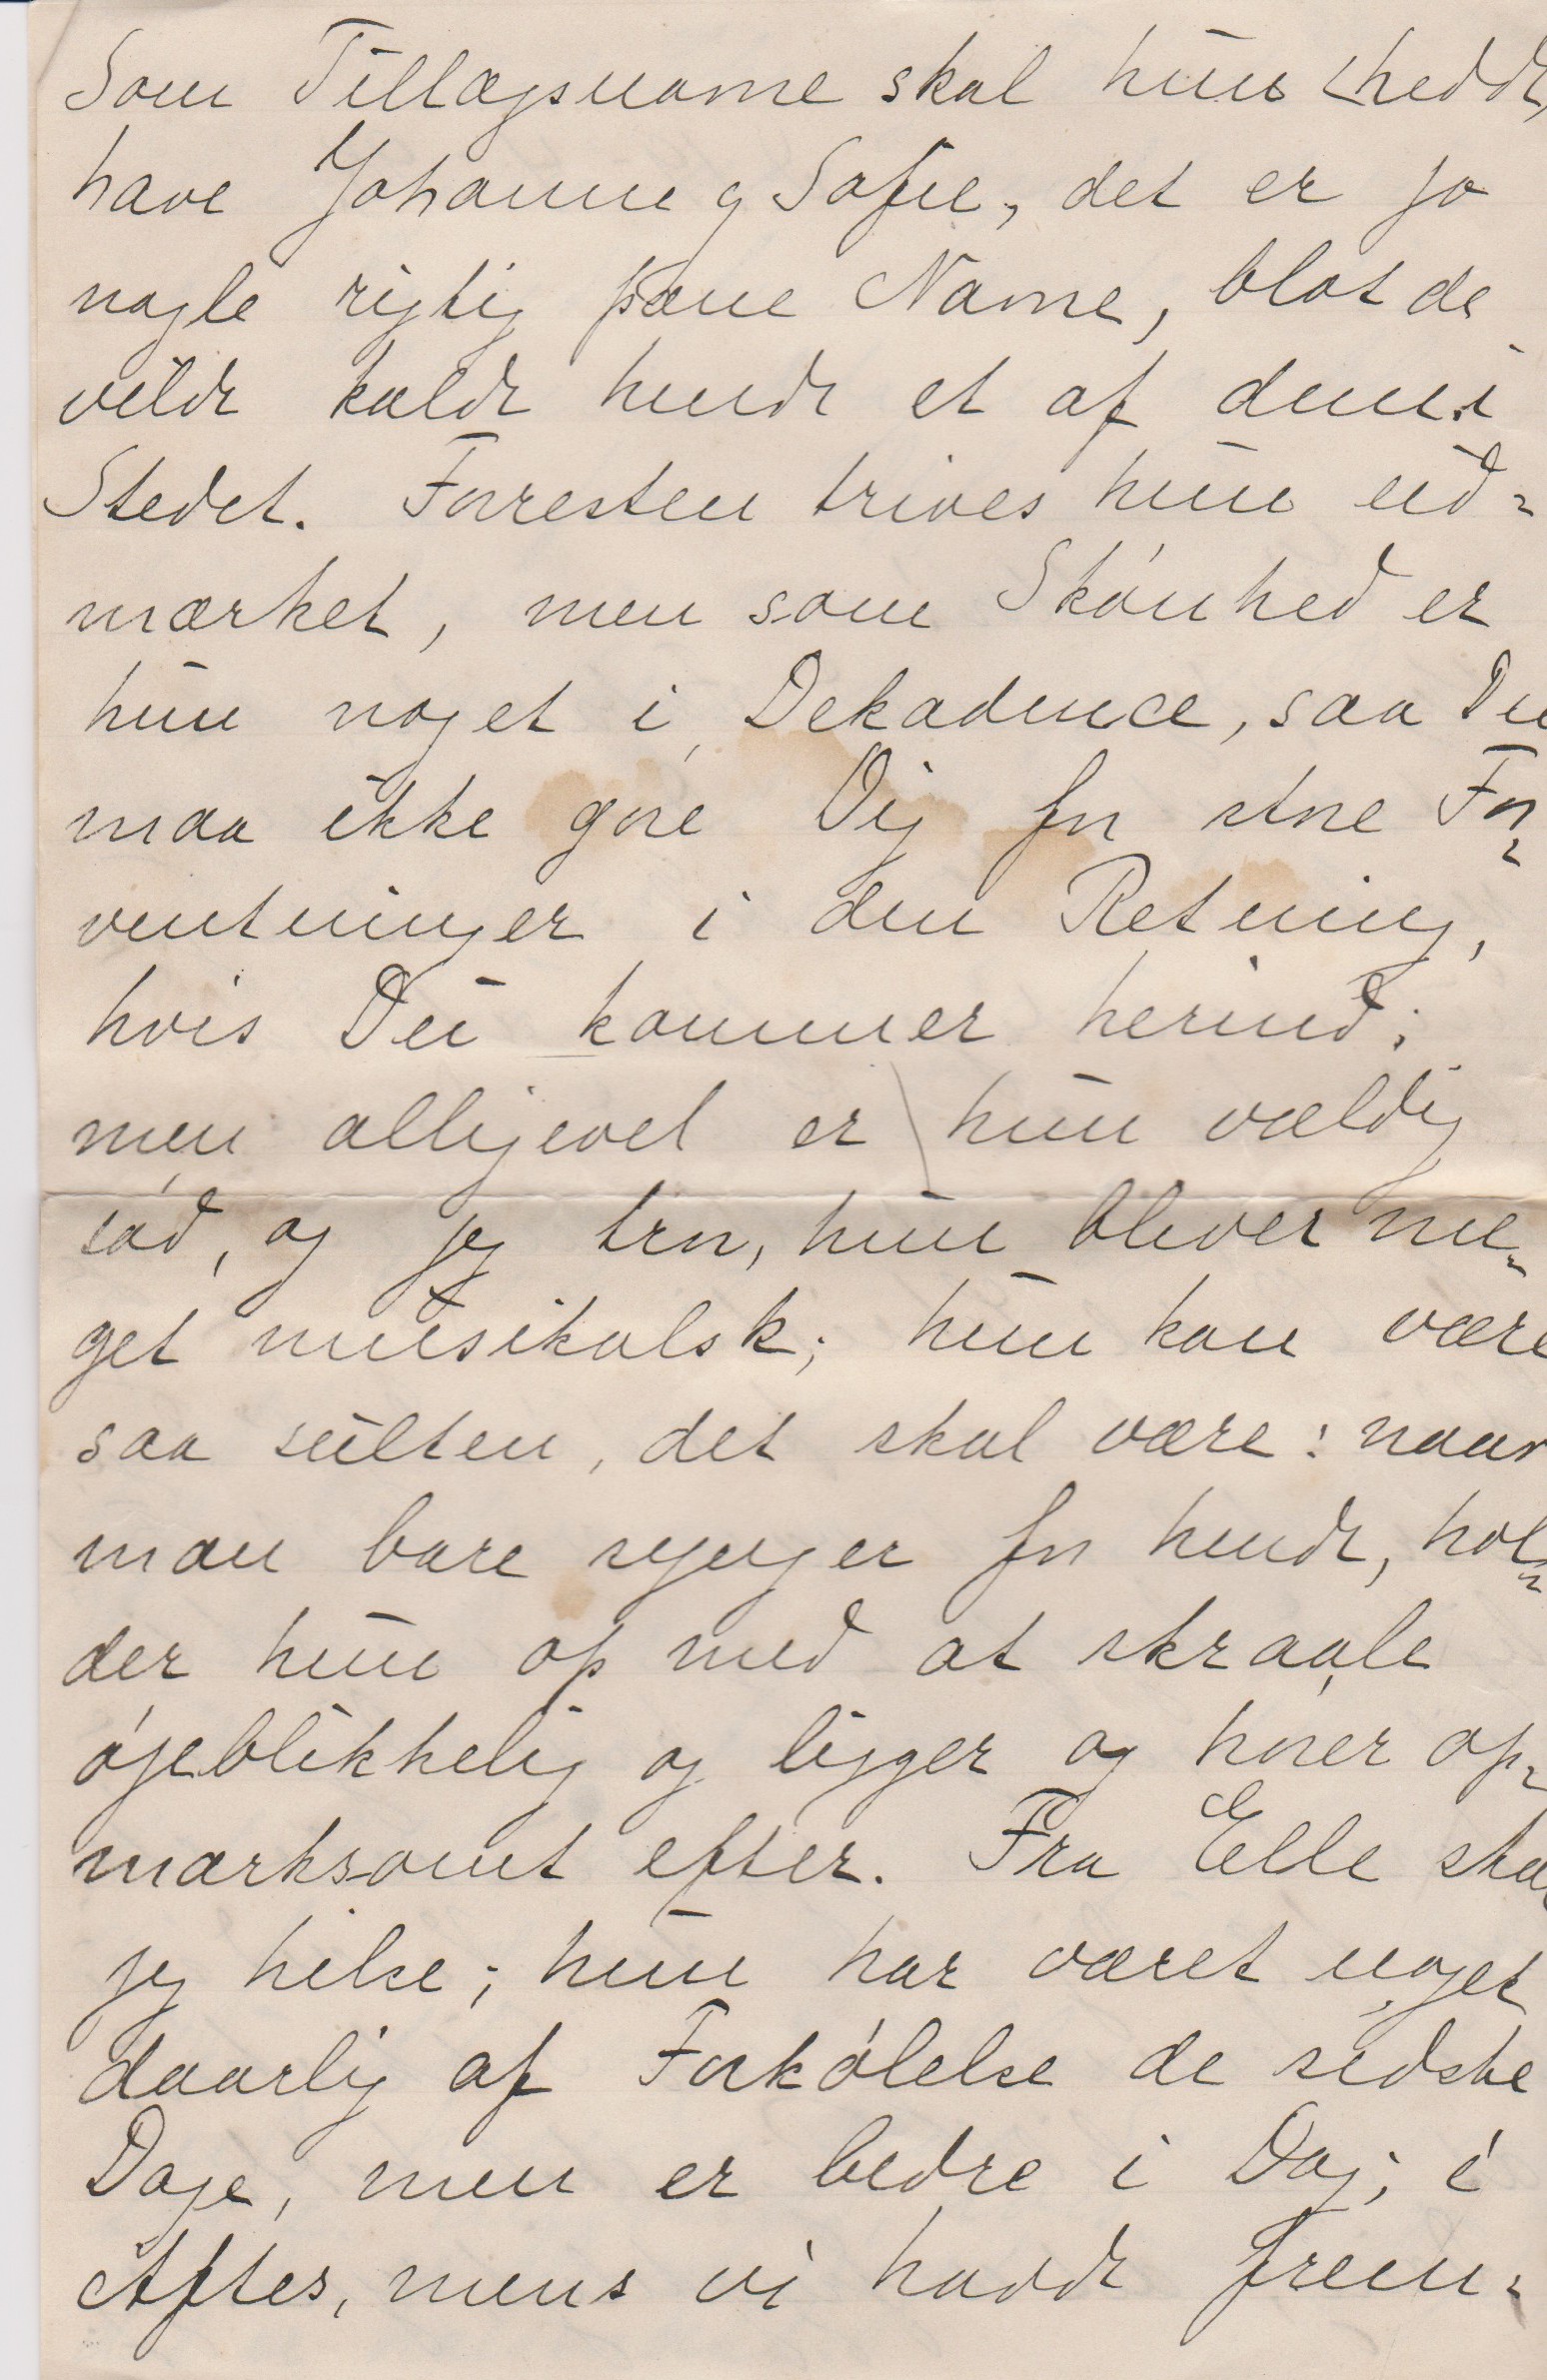 Som Tillægsnavne skal hun hedde,
have Johanne og Sofie, det er jo
nogle rigtig pæne Navne, blot de
vilde kalde hende et af dem i
Stedet. Forresten trives hun ud-
mærket, men som Skønhed er
hun noget i Dekadence, saa Du
maa ikke gøre Dig for store For-
ventninger i den Retning,
hvis Du kommer herind;
men alligevel er hun vældig
sød, og jeg tror, hun bliver me-
get musikalsk; hun kan være
saa sulten, det skal være: naar
man bare synger for hende, hol-
der hun op med at skraale
øjeblikkelig og ligger og hører op-
mærksomt efter. Fra Elle skal
jeg hilse; hun har været noget
daarlig af Forkølelse de sidste
Dage, men er bedre i Dag; i
Aftes, mens vi havde frem-